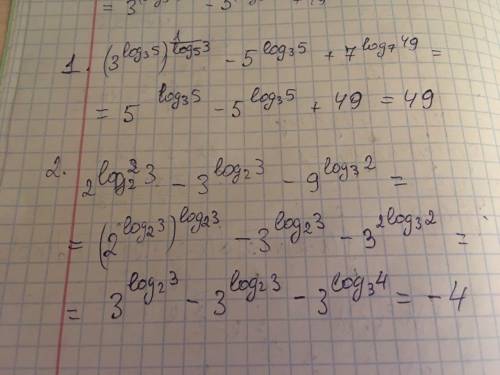 = 3^{log₃5} - 5
1. (3^{log₃5})^{\frac{1}{log₅3}} - 5^{log₃5} + 7^{log₇49} =
= 5^{log₃5} - 5^{log₃5} + 49 = 49
2. 2^{log₂²3} - 3^{log₂3} - 9^{log₃2} =
= (2^{log₂3})^{log₂3} - 3^{log₂3} - 3^{2log₃2} =
= 3^{log₂3} - 3^{log₂3} - 3^{log₃4} = -4